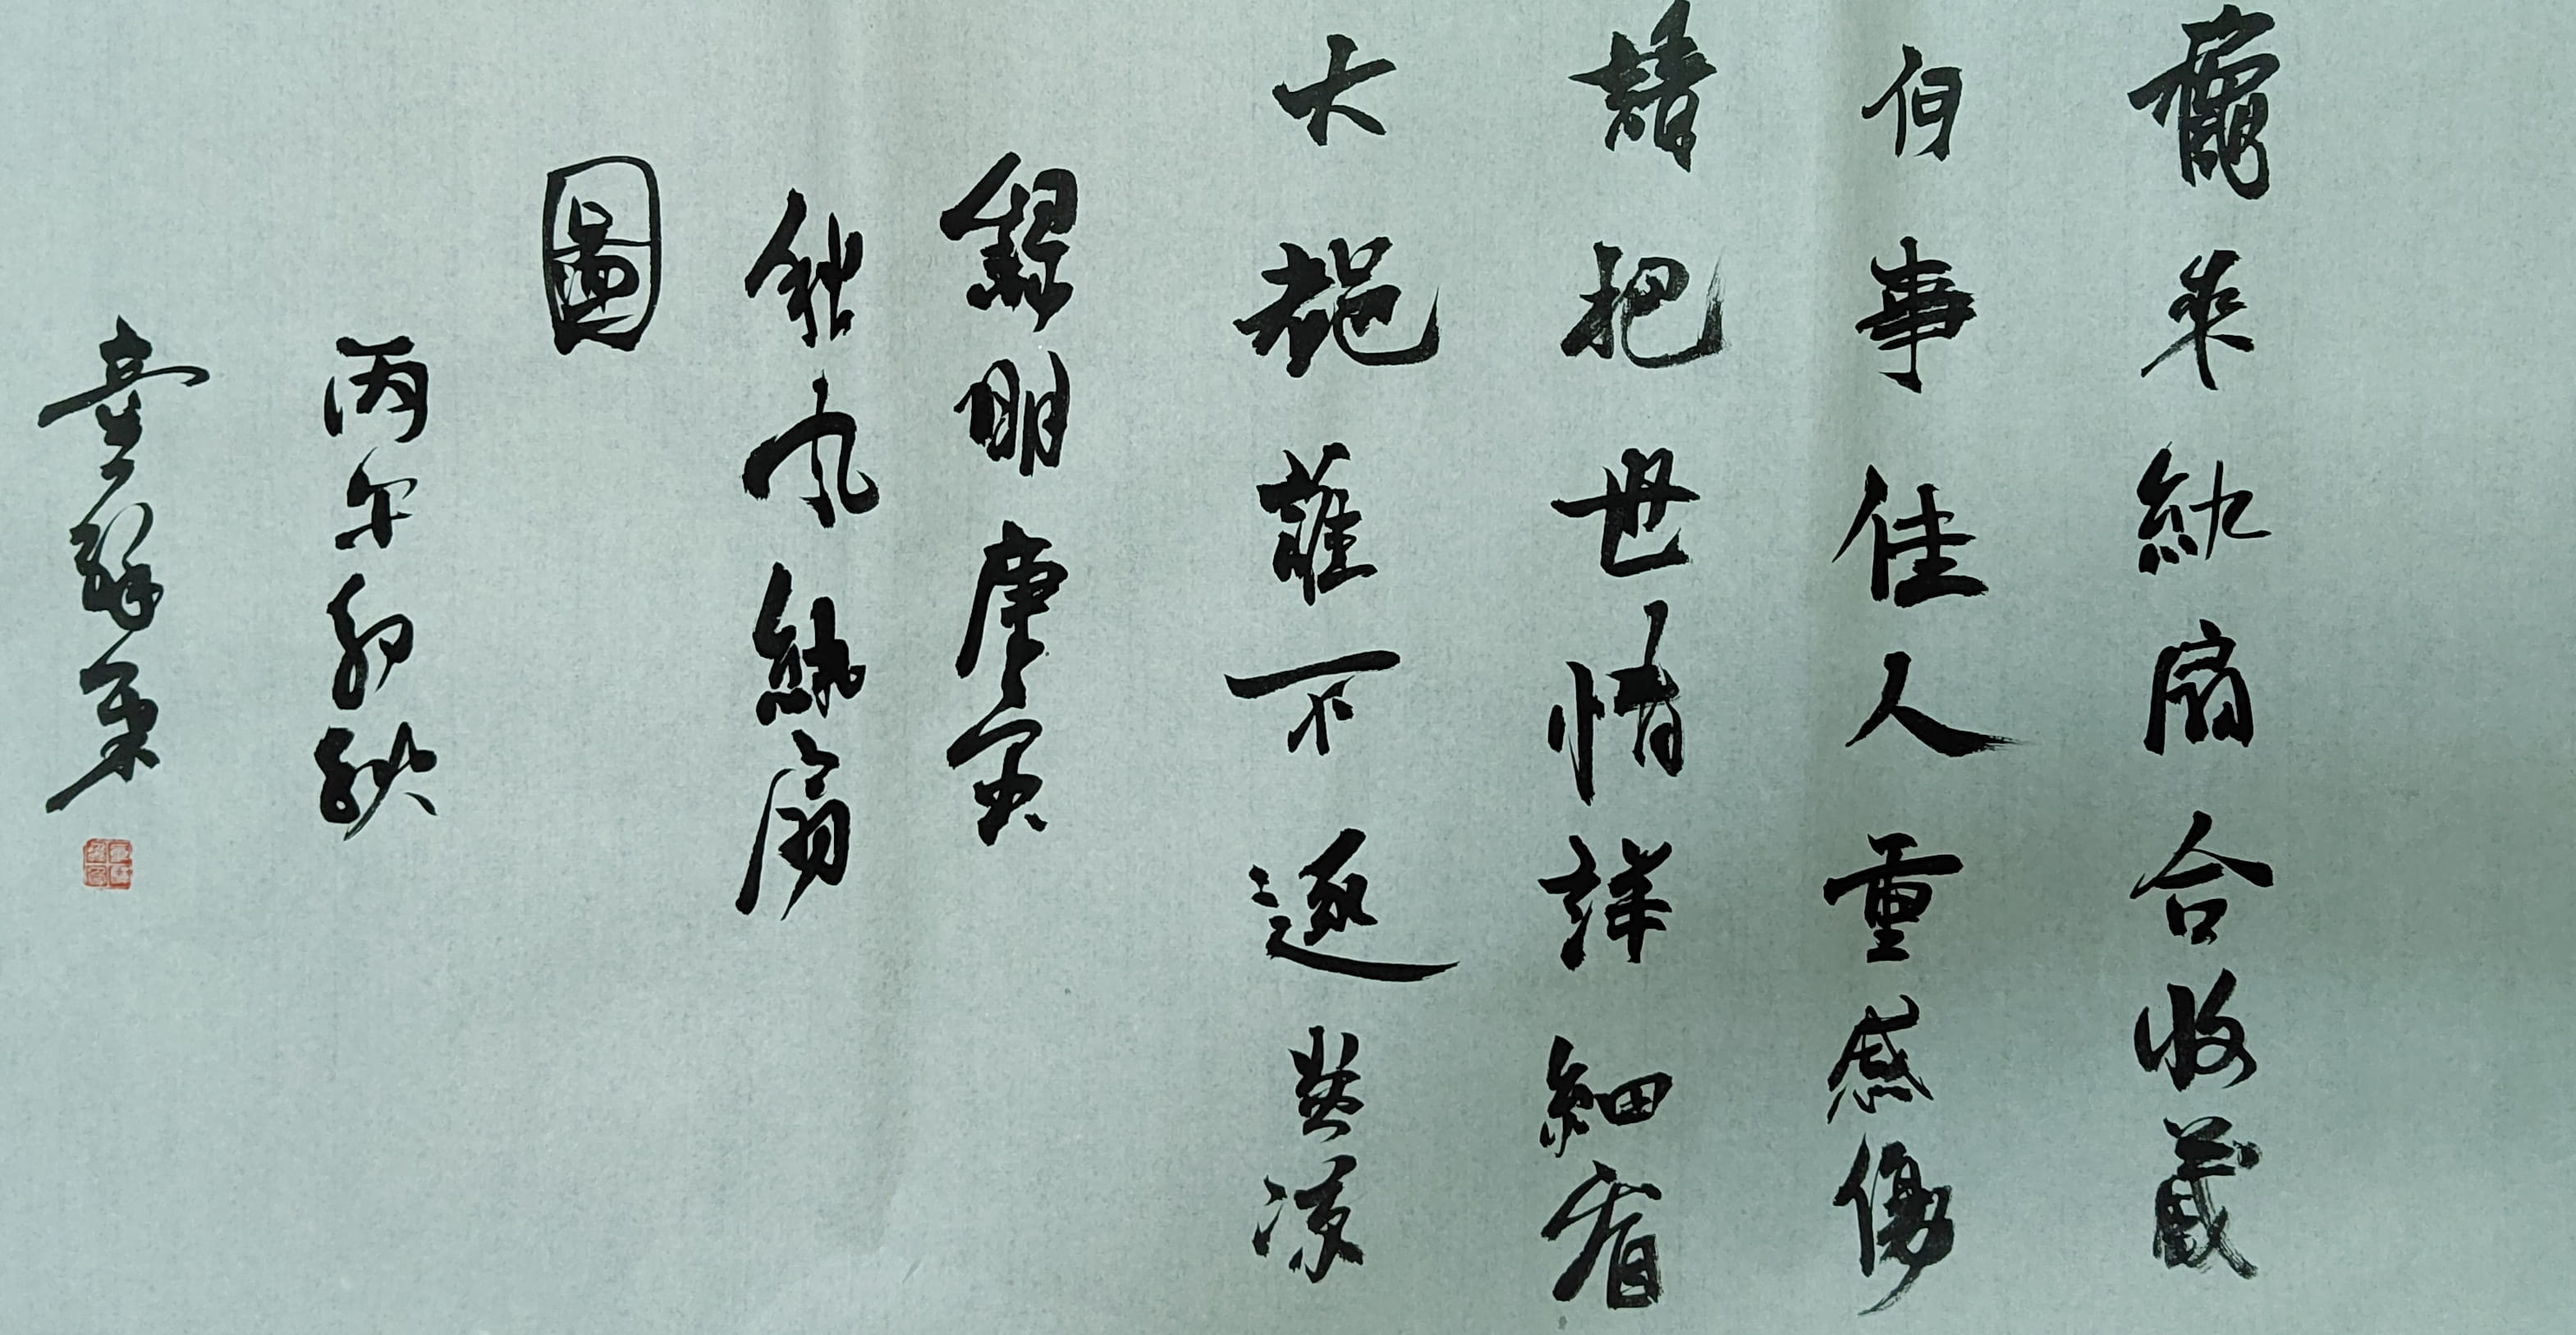 龝來紈扇合收藏
何事佳人重感傷
請把世情詳細看
大都誰不逐炎涼
錄明唐寅
秋風紈扇
圖
丙午初秋